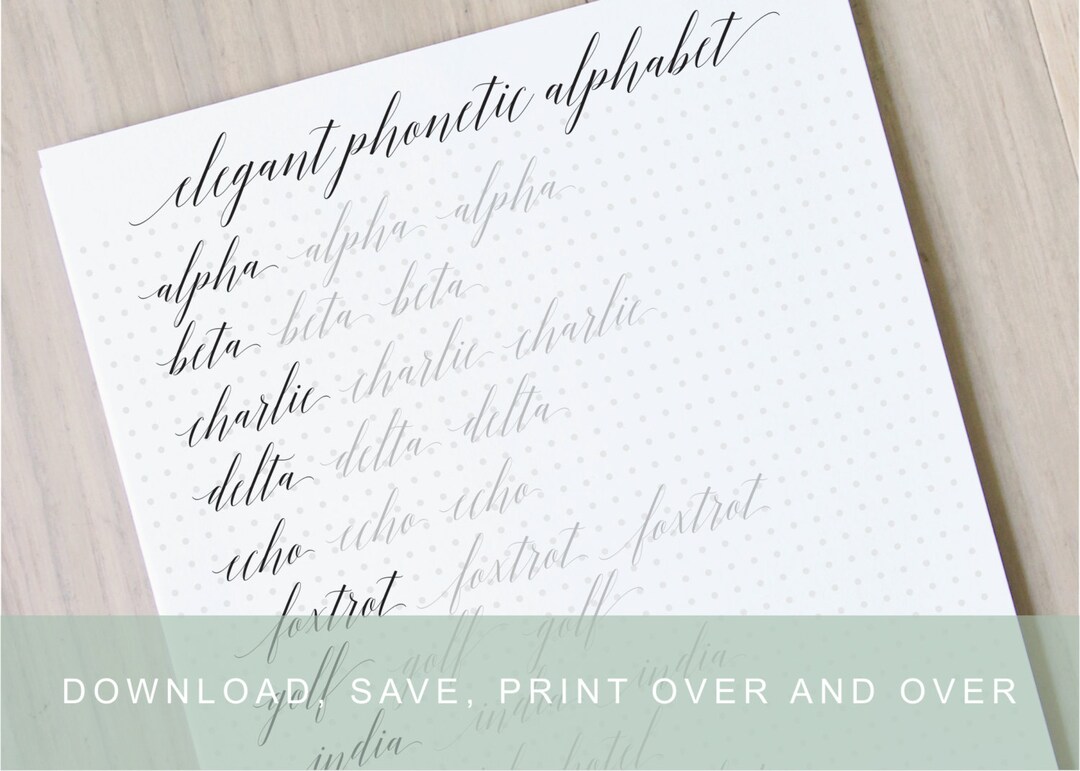 elegant phonetic alphabet
alpha alpha alpha
beta beta beta
charlie charlie charlie
delta delta delta
echo echo echo
foxtrot foxtrot foxtrot
golf golf golf
india india india
hotel
DOWNLOAD, SAVE, PRINT OVER AND OVER